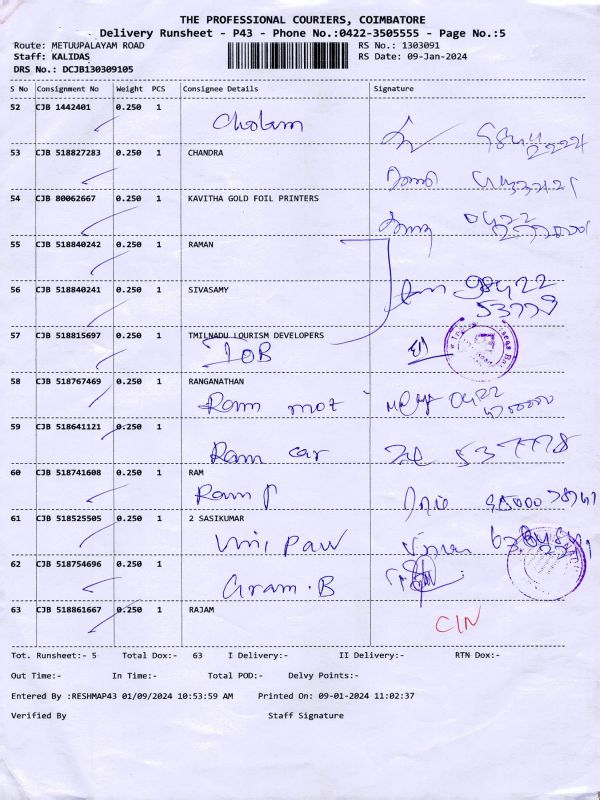 THE PROFESSIONAL COURIERS, COIMBATORE
Delivery Runsheet - P43 - Phone No.:0422-3505555 - Page No.:5
Route: METUUPALAYAM ROAD RS No.: 1303091
Staff: KALIDAS RS Date: 09-Jan-2024
DRS No.: DCJB130309105
S No Consignment No Weight PCS Consignee Details Signature
52 CJB 1442401 0.250 1
Cholam
53 CJB 518827283 0.250 1 CHANDRA
54 CJB 80062667 0.250 1 KAVITHA GOLD FOIL PRINTERS
55 CJB 518840242 0.250 1 RAMAN
56 CJB 518840241 0.250 1 SIVASAMY
98422
53779
57 CJB 518815697 0.250 1 TMILNADU LOURISM DEVELOPERS
IOB
58 CJB 518767469 0.250 1 RANGANATHAN
Ram mot 0422
59 CJB 518641121 0.250 1
Ram car
60 CJB 518741608 0.250 1 RAM
Ram P
61 CJB 518525505 0.250 1 2 SASIKUMAR
Uni Paw
62 CJB 518754696 0.250 1
Gram.B
63 CJB 518861667 0.250 1 RAJAM
CIN
Tot. Runsheet:- 5 Total Dox:- 63 I Delivery:- II Delivery:- RTN Dox:-
Out Time:- In Time:- Total POD:- Delvy Points:-
Entered By :RESHMAP43 01/09/2024 10:53:59 AM Printed On: 09-01-2024 11:02:37
Verified By Staff Signature